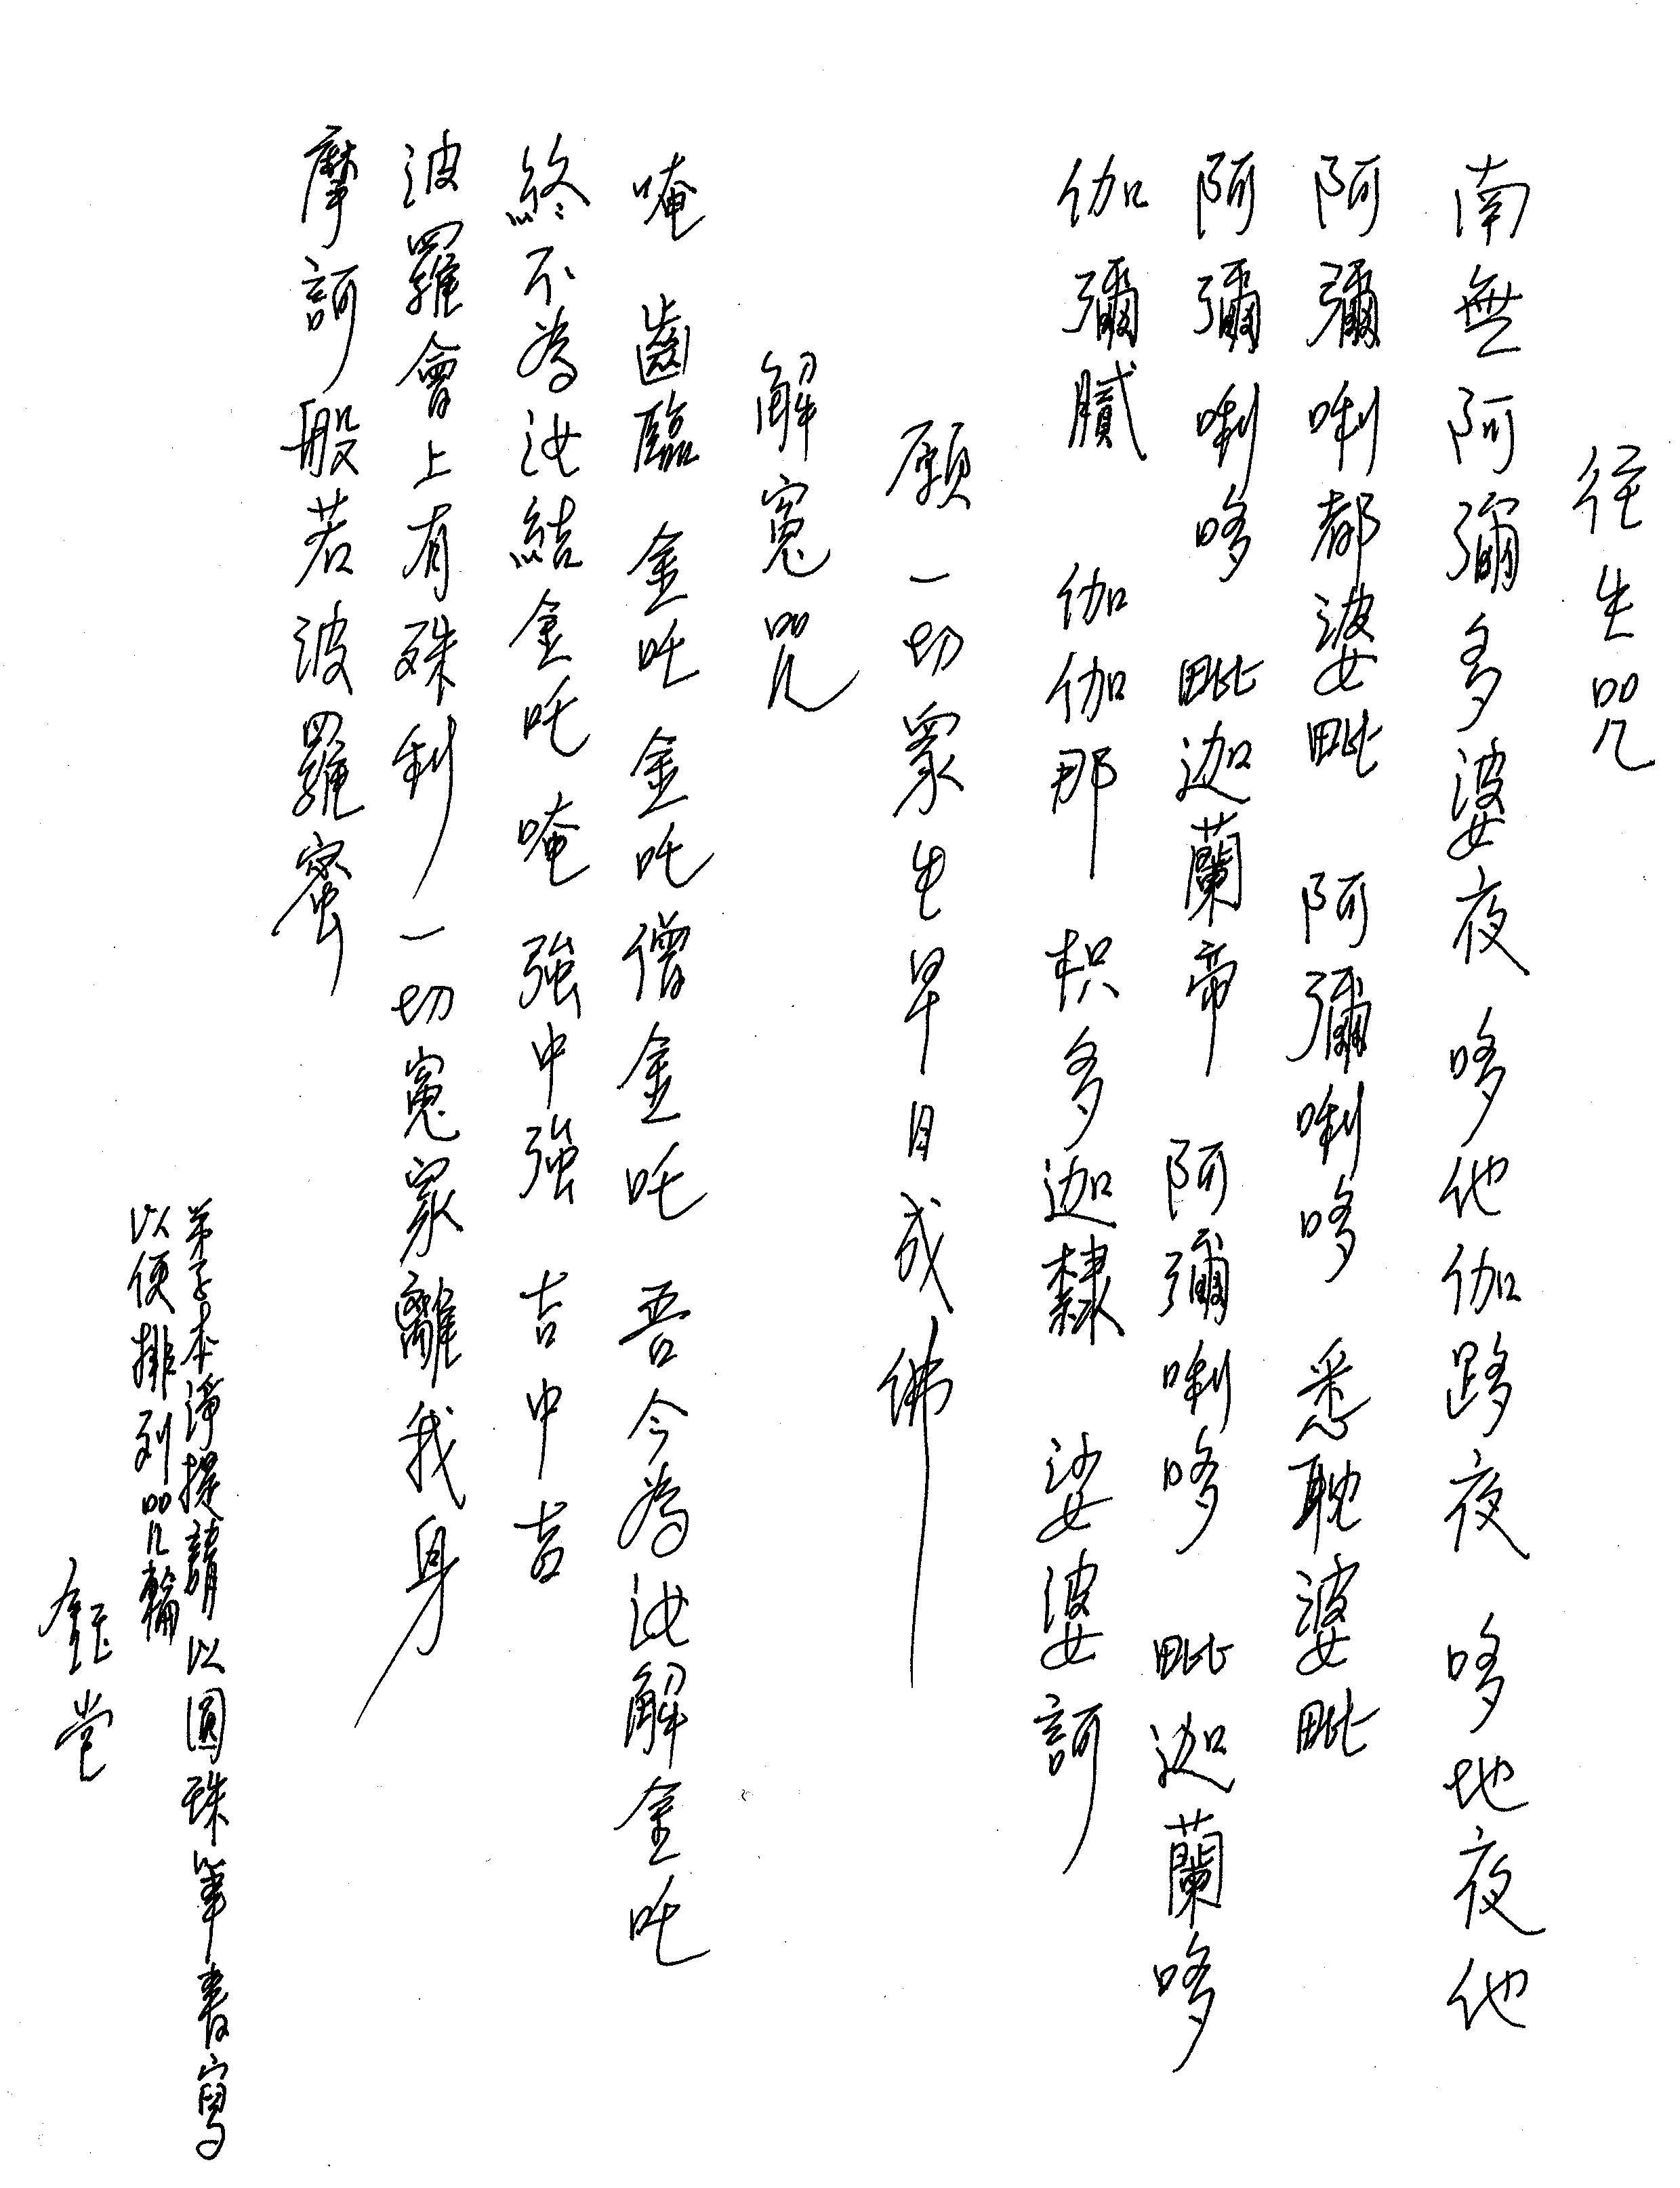 往生咒
南無阿彌多婆夜 哆他伽跢夜 哆地夜他
阿彌唎都婆毗 阿彌唎哆 悉耽婆毗
阿彌唎哆 毗迦蘭帝 阿彌唎哆 毗迦蘭哆
伽彌膩 伽伽那 枳多迦隸 娑婆訶
願一切眾生早日成佛
解冤咒
唵 齒臨 金吒金吒僧金吒 吾今為汝解金吒
終不為汝結金吒 唵 強中強 吉中吉
波羅會上有殊利 一切冤家離我身
摩訶般若波羅蜜
弟子本淨提請以圓珠筆書寫
以便排列咒輪